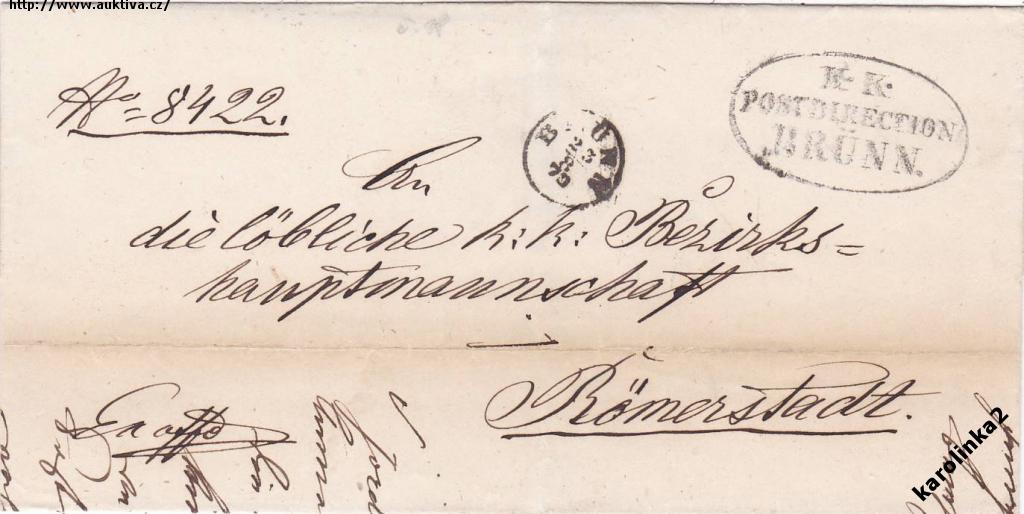 http://www.auktiva.cz/
No = 8422.
BRÜNN
K. K.
POSTDIRECTION
BRÜNN.
An
die löbliche k: k: Bezirks=
hauptmannschaft
Römerstadt.
Ex offo
karolinka2